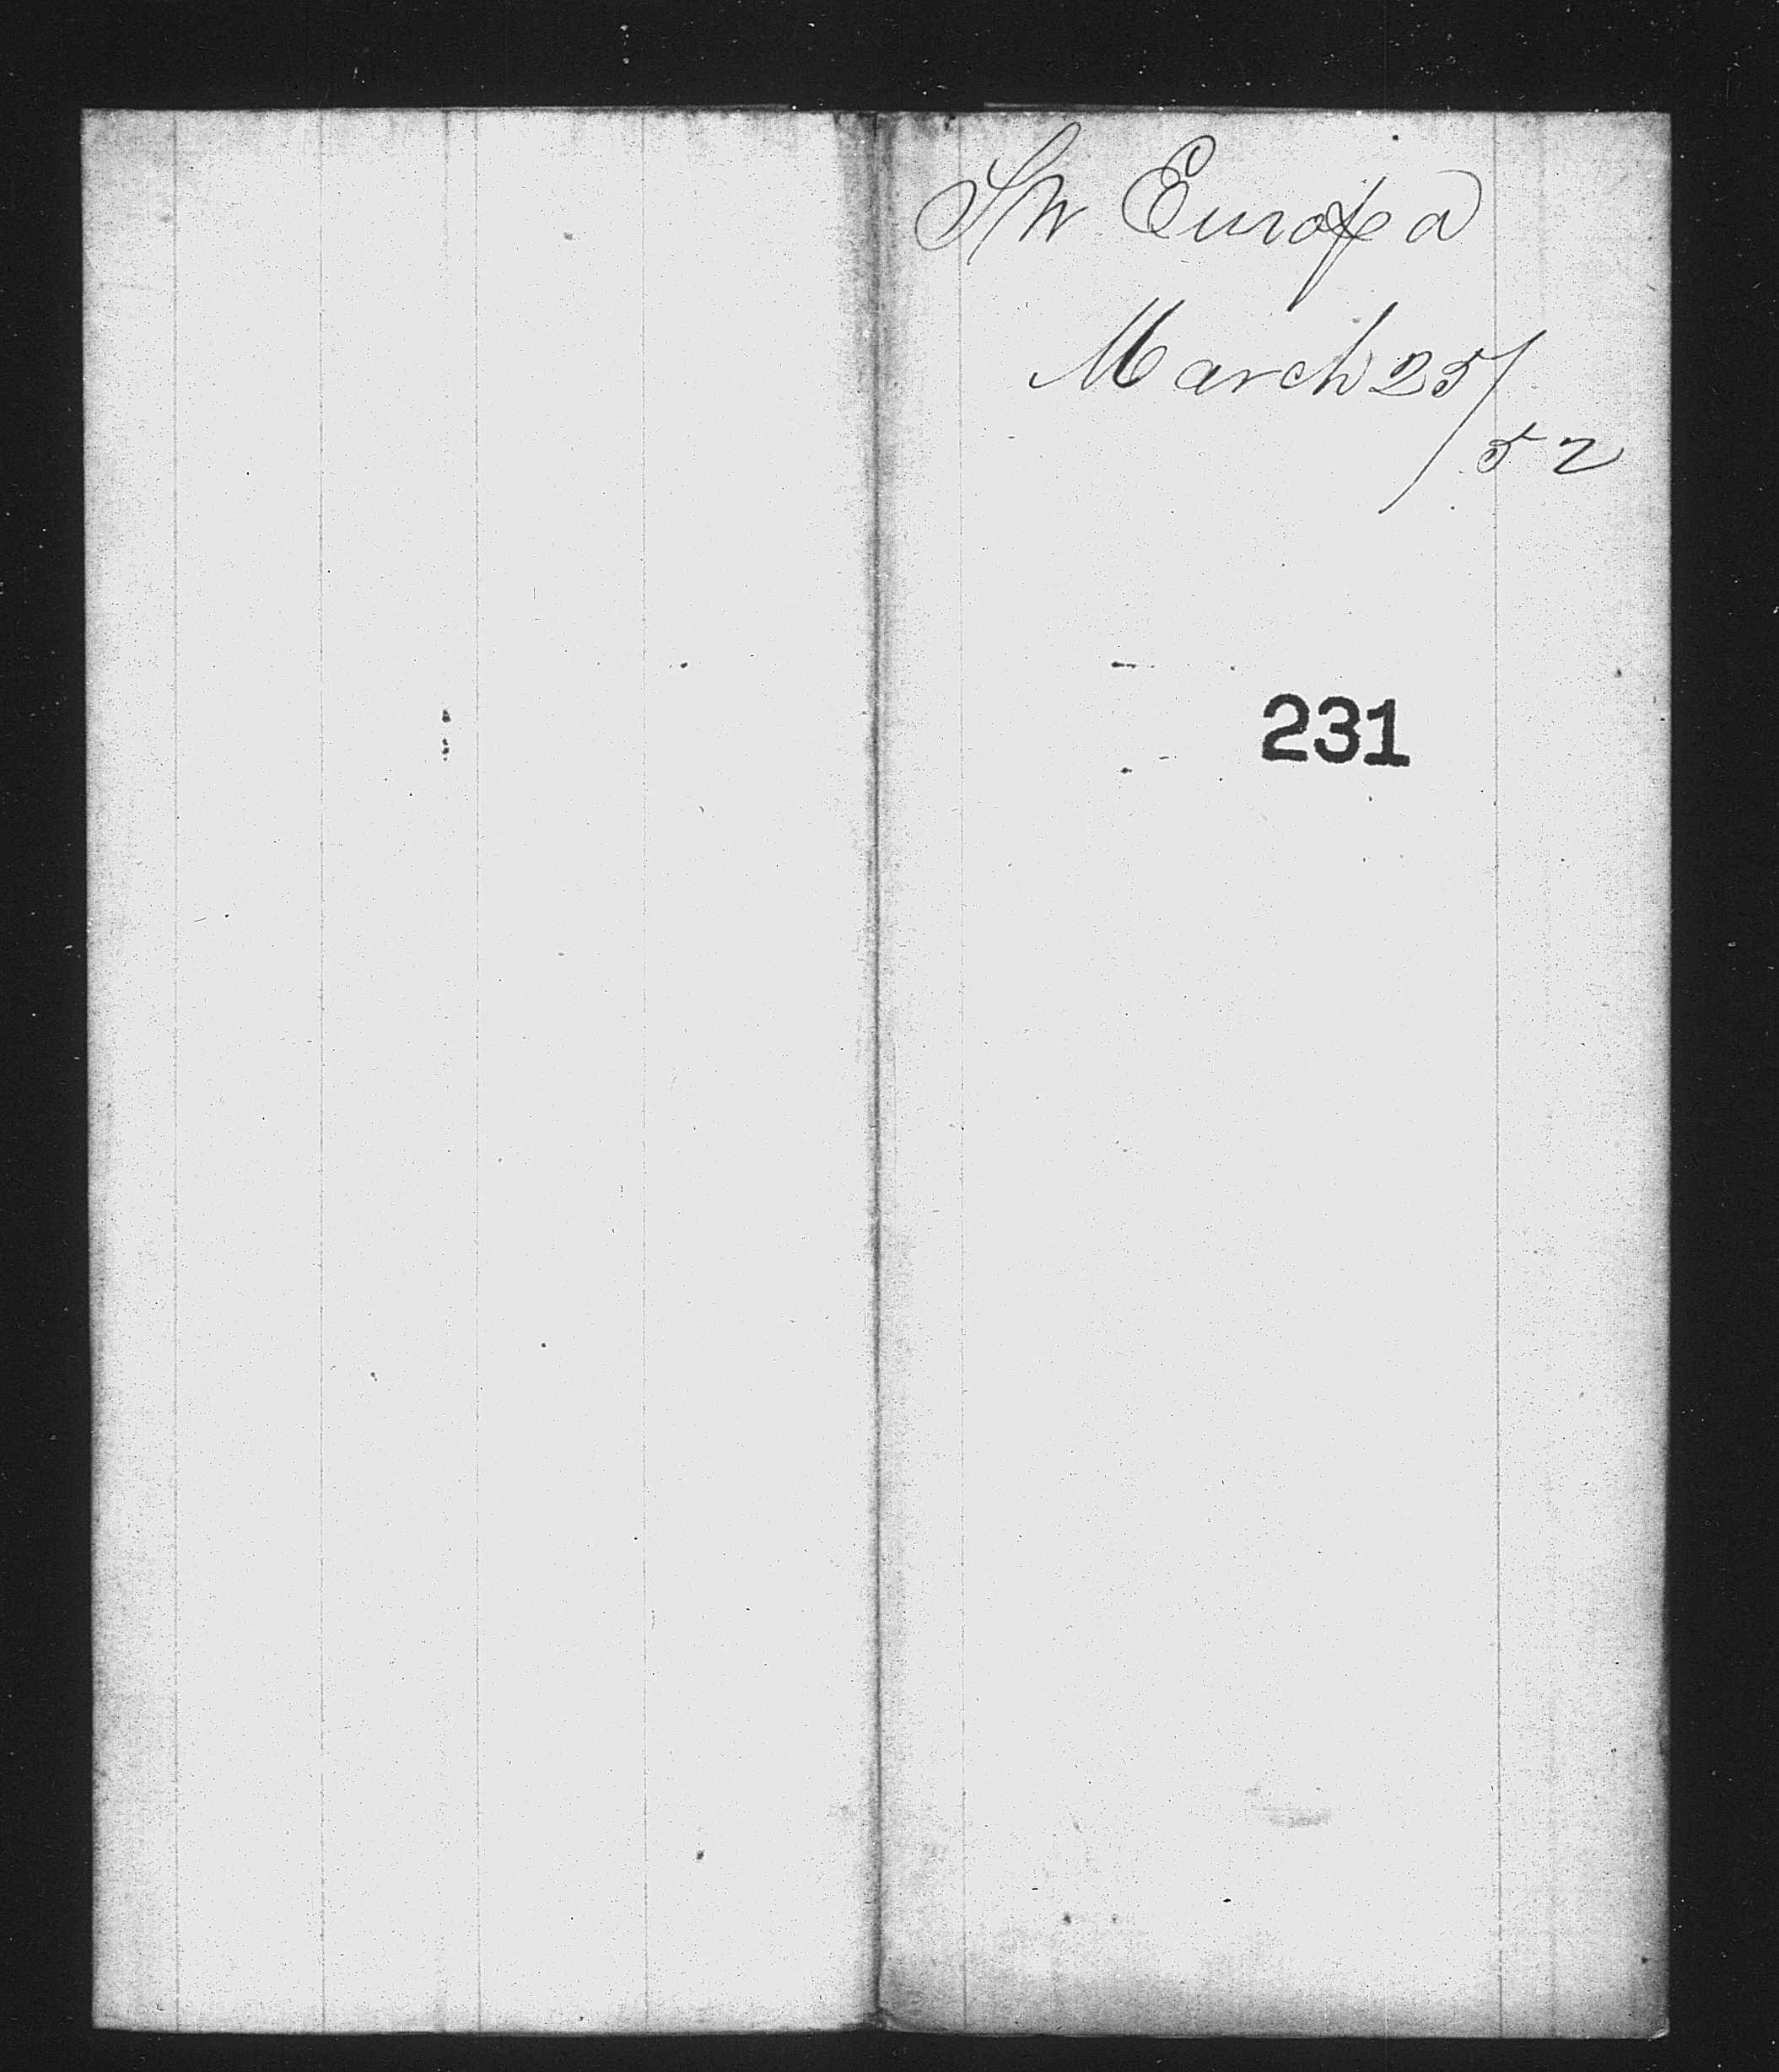 Str Europa
March 25/
52
231